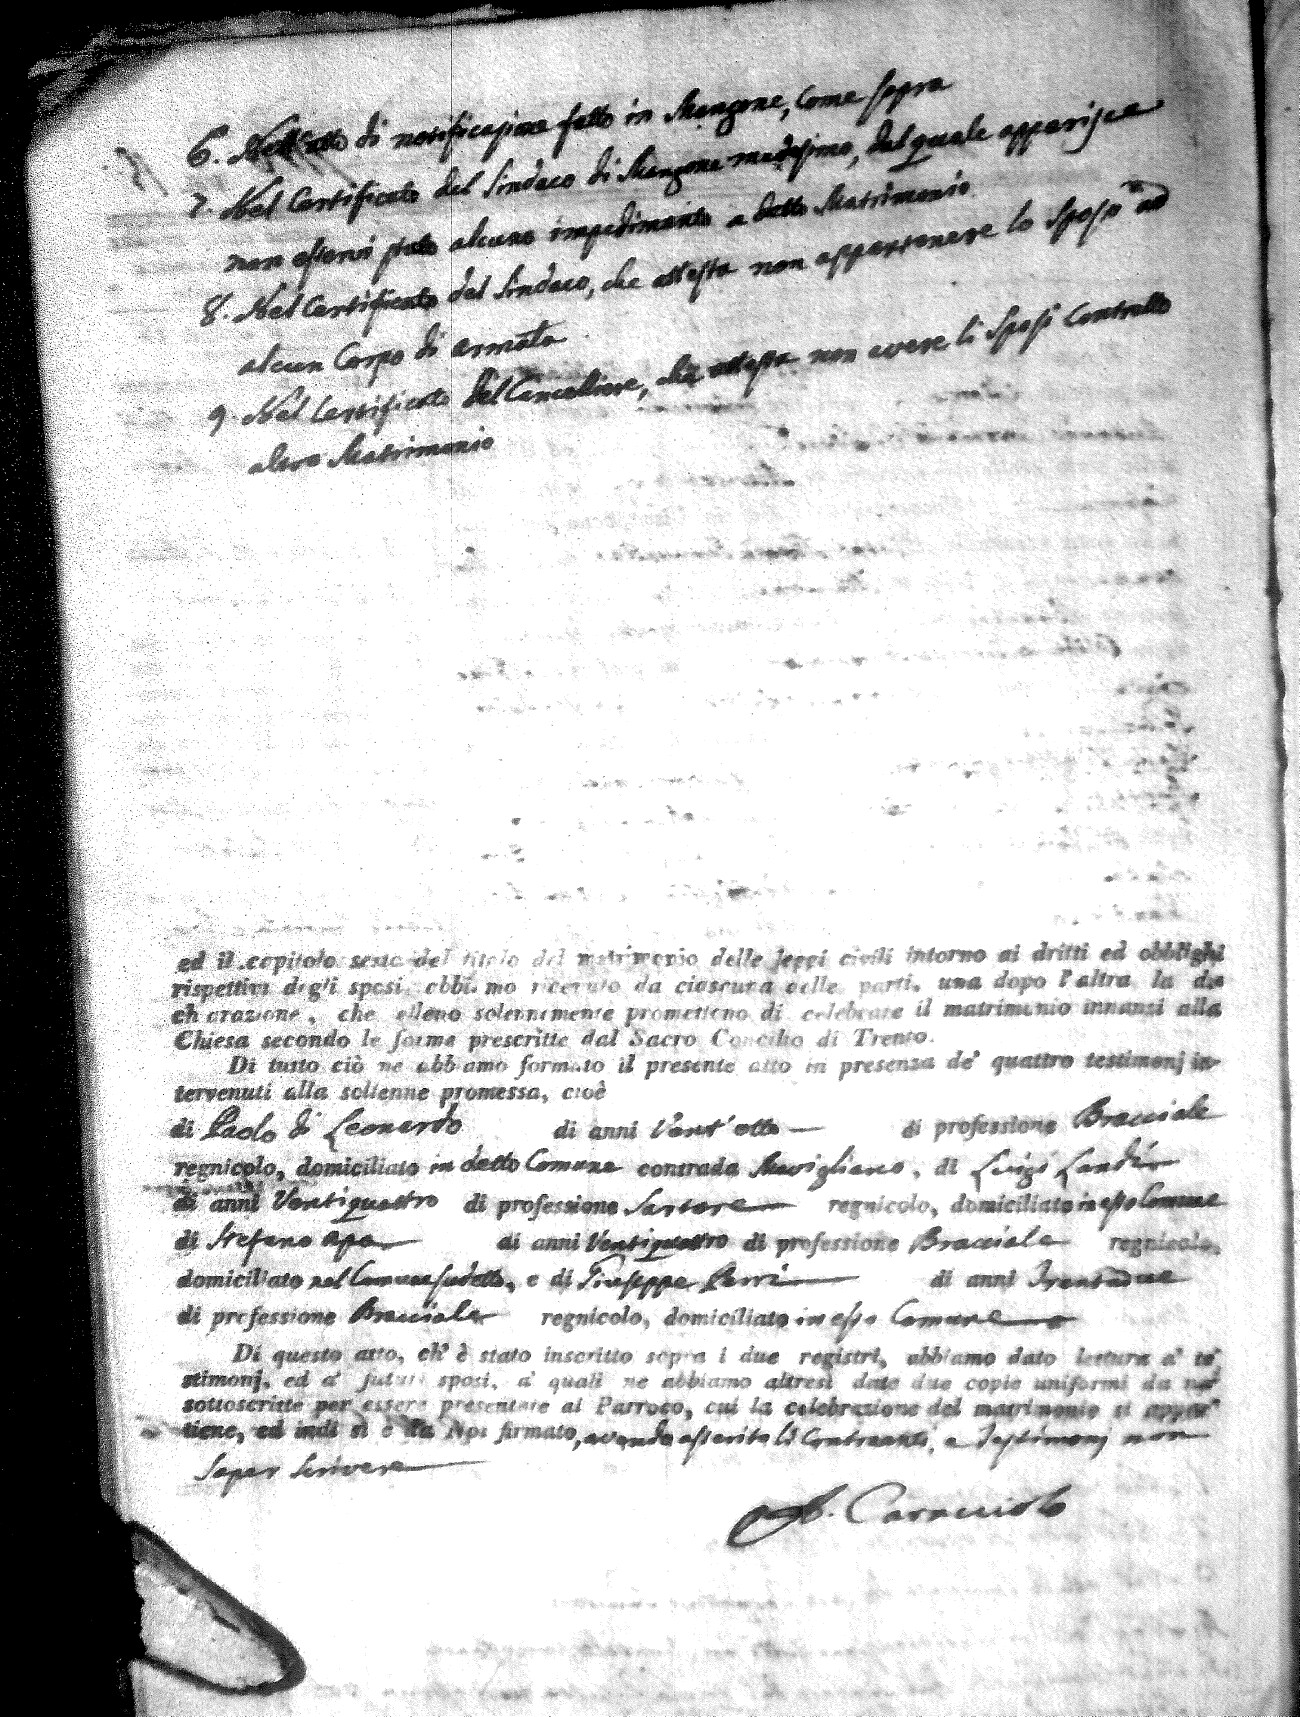 6. Nell'atto di notificazione fatto in Mangone, come sopra
7. Nel Certificato del Sindaco di Mangone medesimo, dal quale apparisce
non esservi stato alcuno impedimento a detto Matrimonio
8. Nel Certificato del Sindaco, che attesta non appartenere lo Sposo ad
alcun Corpo di armata
9. Nel Certificato del Cancelliere, che attesta non avere li Sposi Contratto
altro Matrimonio
ed il capitolo sesto del titolo del matrimonio delle leggi civili intorno ai dritti ed obblighi
rispettivi degli sposi, abbiamo ricevuto da ciascuna delle parti, una dopo l'altra la di-
chiarazione, che elleno solennemente promettono di celebrare il matrimonio innanzi alla
Chiesa secondo le forme prescritte dal Sacro Concilio di Trento.
Di tutto ciò ne abbiamo formato il presente atto in presenza de' quattro testimonj in-
tervenuti alla sollenne promessa, cioè
di Paolo di Leonardo di anni Vent'otto di professione Bracciale
regnicolo, domiciliato in detto Comune contrada Mavigliano, di Luigi Landi
di anni Ventiquattro di professione Sartore regnicolo, domiciliato in esso Comune
di Stefano Apa di anni Ventiquattro di professione Bracciale regnicolo,
domiciliato nel Comune sudetto, e di Giuseppe Perri di anni Trentadue
di professione Bracciale regnicolo, domiciliato in esso Comune
Di questo atto, ch' è stato inscritto sopra i due registri, abbiamo dato lettura a' te-
stimonj, ed a' futuri sposi, a' quali ne abbiamo altresì date due copie uniformi da noi
sottoscritte per essere presentate al Parroco, cui la celebrazione del matrimonio si appar-
tiene, ed indi si è da Noi firmato, avendo asserito li Contraenti, e Testimonj non
saper scrivere
Caracciolo